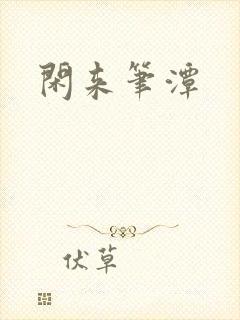 閑来筆潭
伏草